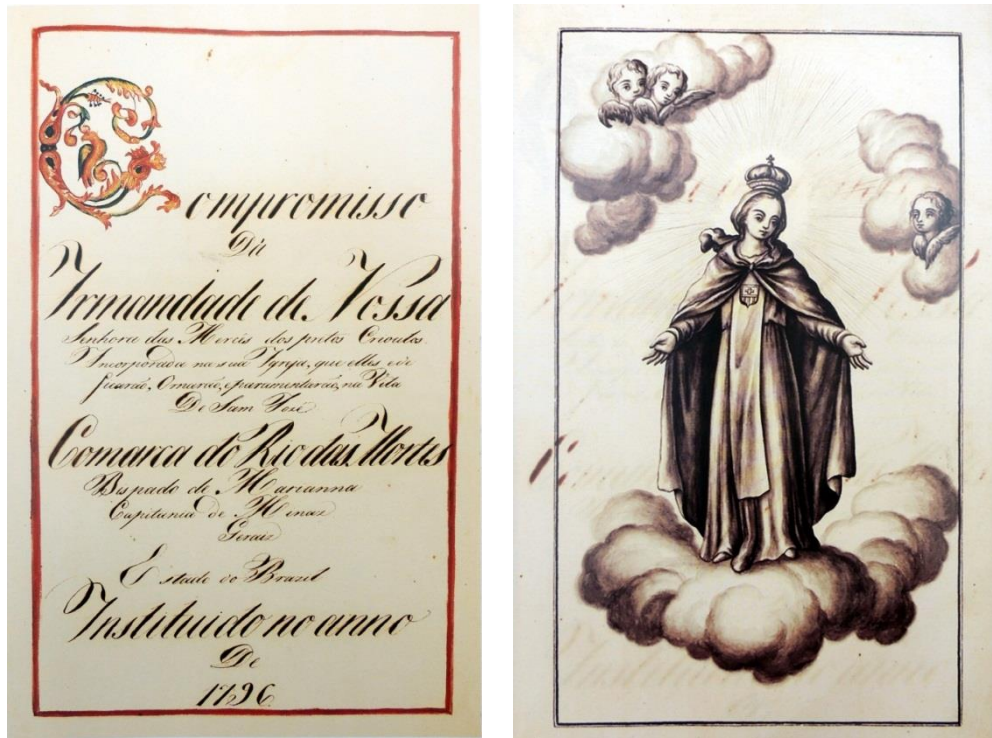 Compromisso
Da
Irmandade de Nossa
Senhora das Mercês dos pretos Crioulos
Incorporada na sua Igreja, que elles edi
ficaraõ, Ornaraõ, eparamentaraõ, na Villa
De Sam Jozé
Comarca do Rio das Mortes
Bispado de Marianna
Capitania de Minaz
Geraiz
Estado do Brazil
Instituido no anno
De
1796